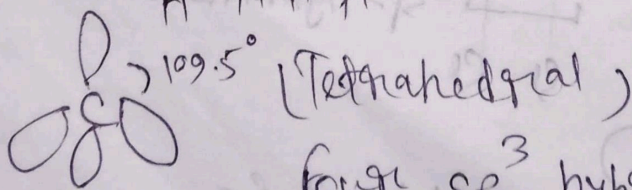 109.5° (Tetrahedral)
C
four sp³